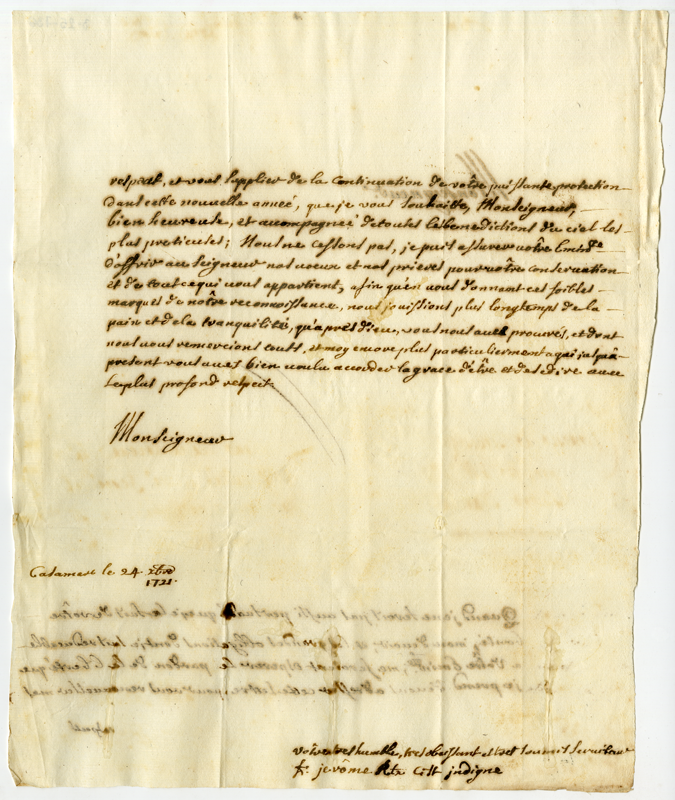 respect, et vous supplier de la continuation de vôtre puissante protection
dans cette nouvelle année, que je vous souhaitte, Monseigneur,
bien heureuse, et accompagneé de toutes les benedictions du ciel les
plus pretieuses; Nous ne cessons pas, je puis assurer vôtre Emin.ce
d'offrir au Seigneur nos voeux et nos prieres pour vôtre conservation
et de tout ce qui vous appartient, afin qu'en vous donnant ces foibles
marques de nôtre reconnoissance, nous jouissions plus longtemps de la
paix et de la tranquilité, qu'apres dieu, vous nous avés procurés, et dont
nous vous remercions touts, et moy encore plus particulierement a qui
present vous aves bien voulu accorder la grace d'être et de se dire avec
le plus profond respect
Monseigneur
le 24. xbre
1721.
vôtre tres humble, tres obeissant et tres soumis serviteur
fr. jerôme Cist. jndigne